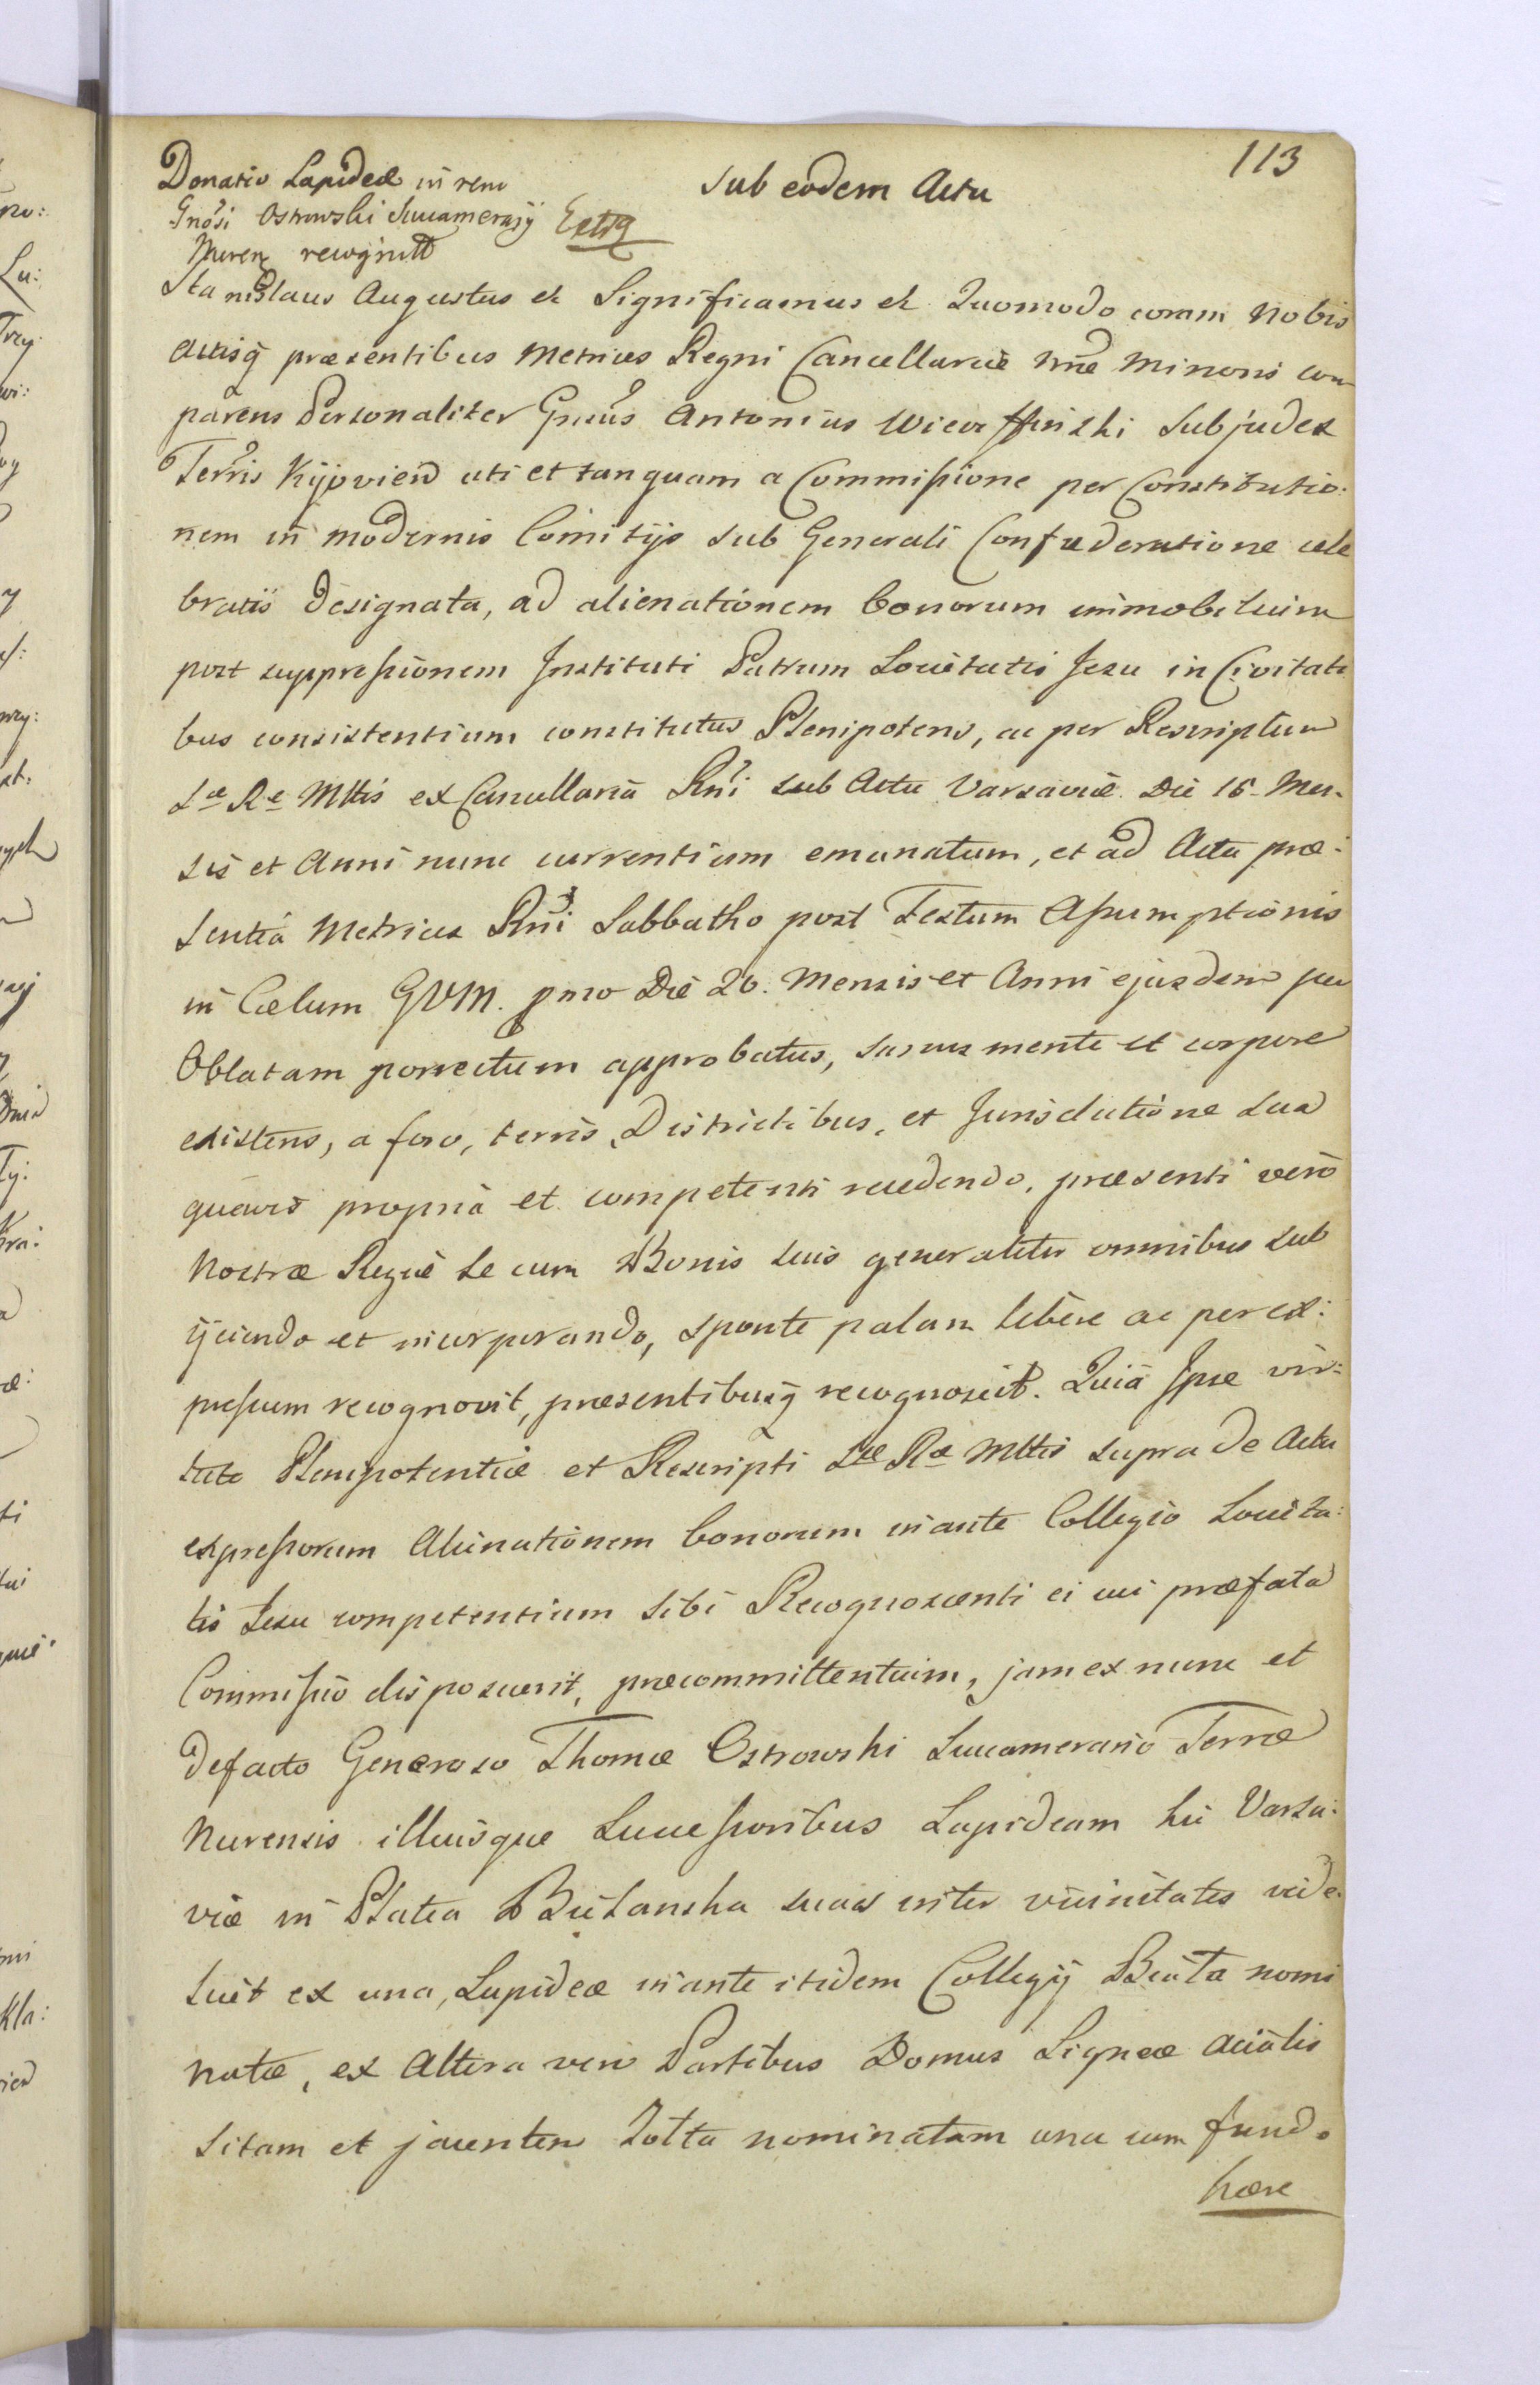 113
Donatio Lapideæ in rem
Gnosi Ostrowski Succamerarij
Nuren recognitt
Extra
Sub eodem Actu
Stanislaus Augustus et Significamus et Quomodo coram Nobis
Actisq præsentibus Metrices Regni Cancellariæ Nræ Minoris com
parens Personaliter Gnsus Antonius Subjudex
Terris Kijovien uti et tanquam a Commissione per Constitutio:
nem in modernis Comitijs sub Generali Confæderatione cele
bratis designata, ad alienationem bonorum immobilium
post suppressionem Instituti Patrum Societatis Jesu in Civitati
bus consistentium constitutus Plenipotens, ac per Rescriptum
Sæ Ræ Mttis ex Cancellaria Rni sub Actu Varsaviæ Die 16 Men-
sis et Anni nunc currentium emanatum, et ad Acta præ:
sentia Metrices Rni Sabbatho post Festum Assumptionis
in Cælum GVM. pmo Die 20. Mensis et Anni ejusdem per
Oblatam porrectum approbatus, sanus mente et corpore
existens, a foro, terris, Districtibus, et Jurisdictione sua
quavis propria et competenti recedendo, præsenti vero
Nostræ Regiæ se cum Bonis suis generaliter omnibus sub
ijciendo et incorporando, sponte palam libere ac per ex:
pressum recognovit, præsentibusq recognoscit. Quia Ipse vir:
tute Plenipotentiæ et Rescripti Sæ Ræ Mttis supra de Actu
expressorum Alienationem bonorum inante Collegio Societa:
tis Jesu competentium sibi Recognoscenti ei cui præfata
Commissio disposuerit, præcommittentium, jam ex nunc et
defacto Generoso Thomæ Ostrowski Succamerario Terræ
Nurensis illiusque Successoribus Lapideam hic Varsa:
viæ in Platea Bielanska suas inter vicinitates vide
licet ex una, Lapideæ inante itidem Collegij Biała nomi
natæ, ex Altera vero Partibus Domus Ligneæ Acialis
sitam et jacentem Zołta nominatam una cum fundo
hære